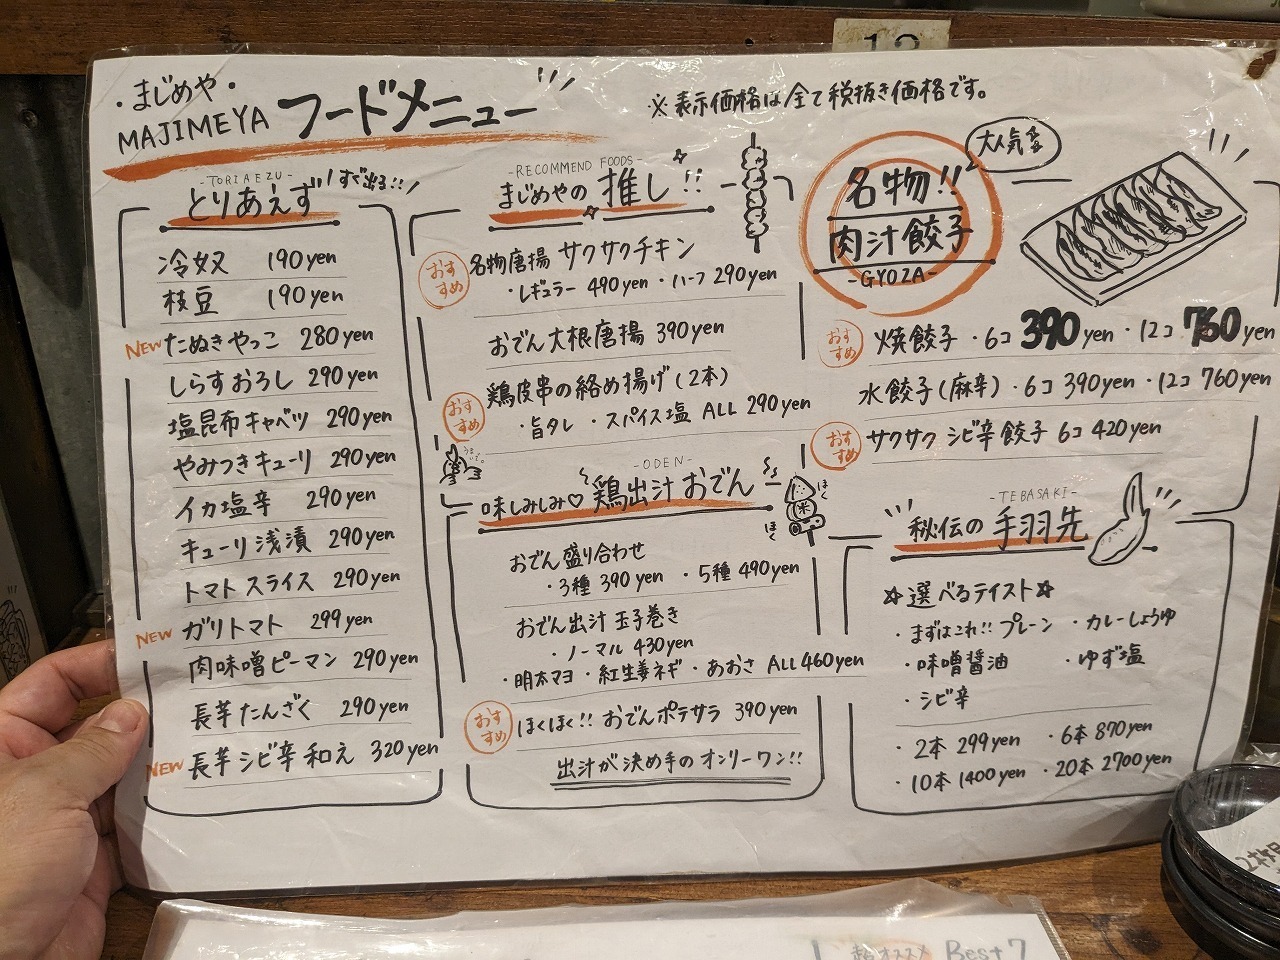 12
・まじめや・
MAJIMEYA フードメニュー
※表示価格は全て税抜き価格です。
-TORIAEZU-
とりあえず すぐ出る!!
冷奴 190yen
枝豆 190yen
NEW たぬきやっこ 280yen
しらすおろし 290yen
塩昆布キャベツ 290yen
やみつきキューリ 290yen
イカ塩辛 290yen
キューリ浅漬 290yen
トマトスライス 290yen
NEW ガリトマト 299yen
肉味噌ピーマン 290yen
長芋たんざく 290yen
NEW 長芋シビ辛和え 320yen
-RECOMMEND FOODS-
まじめやの推し!!
おすすめ 名物唐揚 サクサクチキン
・レギュラー 490yen ・ハーフ 290yen
おでん大根唐揚 390yen
おすすめ 鶏皮串の絡め揚げ(2本)
・旨タレ ・スパイス塩 ALL 290yen
-ODEN-
味しみしみ♡鶏出汁おでん
ほく
ほく
おでん盛り合わせ
・3種 390yen ・5種 490yen
おでん出汁 玉子巻き
・ノーマル 430yen
・明太マヨ ・紅生姜ネギ ・あおさ ALL460yen
おすすめ ほくほく!! おでんポテサラ 390yen
出汁が決め手のオンリーワン!!
大人気
名物!!
肉汁餃子
-GYOZA-
おすすめ 焼餃子 ・6コ 390yen ・12コ 760yen
水餃子(麻辛) ・6コ 390yen ・12コ 760yen
おすすめ サクサク シビ辛餃子 6コ 420yen
-TEBASAKI-
秘伝の手羽先
☆選べるテイスト☆
・まずはこれ!! プレーン ・カレーしょうゆ
・味噌醤油 ・ゆず塩
・シビ辛
・2本 299yen ・6本 870yen
・10本 1400yen ・20本 2700yen
超オススメ Best 7